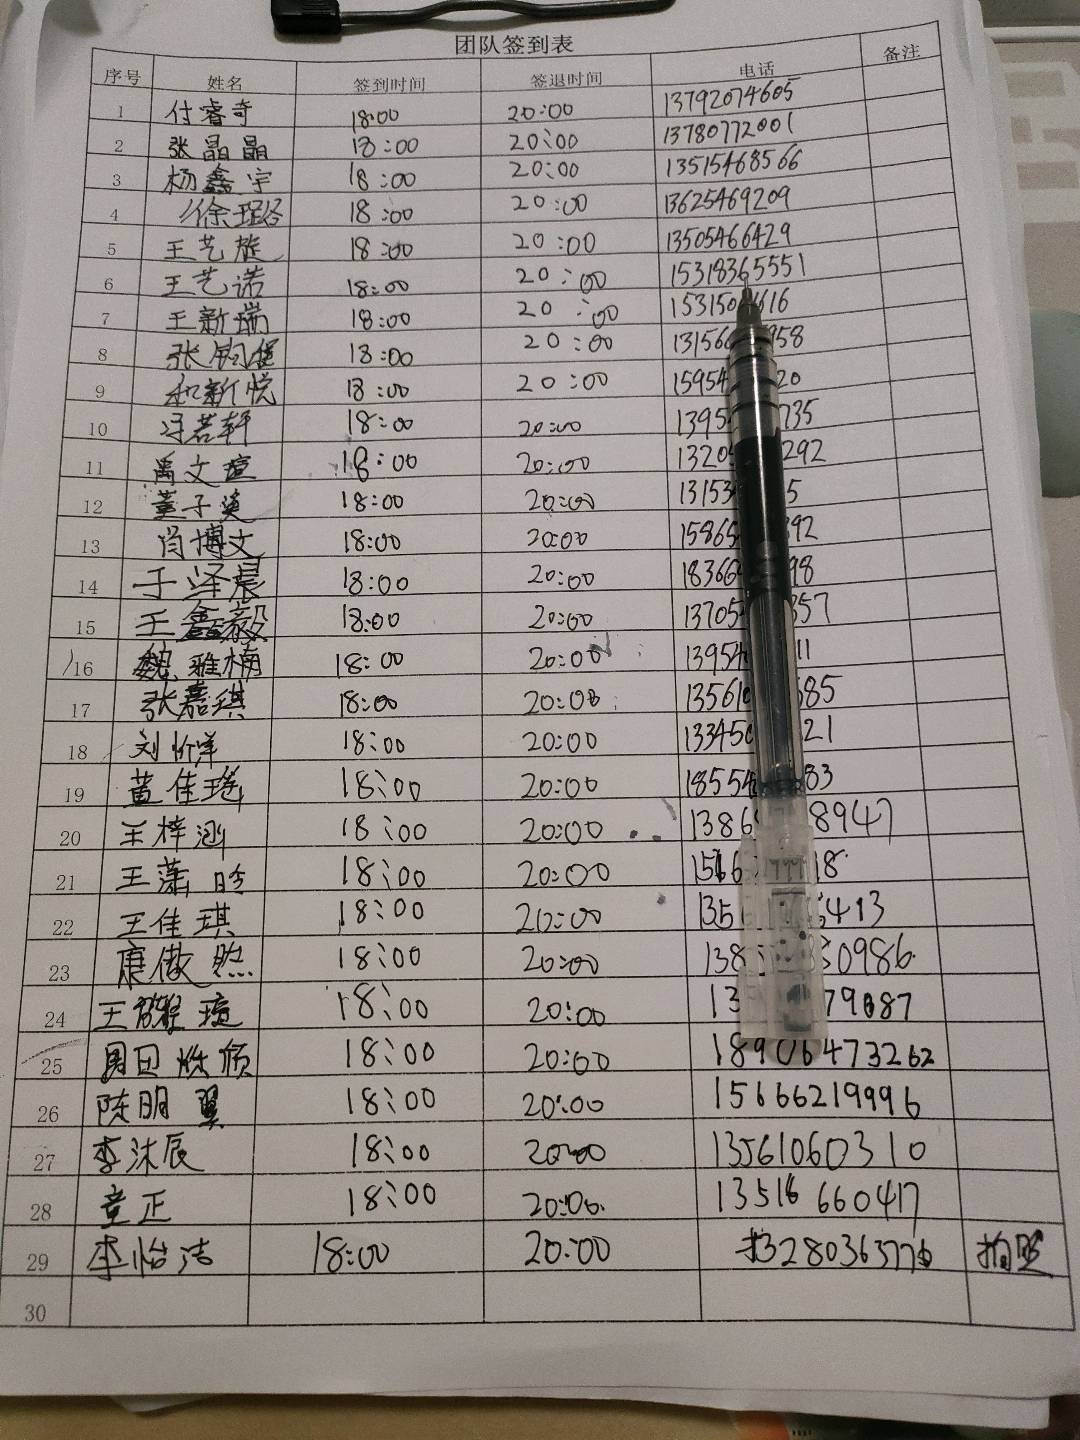 团队签到表
序号 姓名 签到时间 签退时间 电话 备注
1 付睿奇 18:00 20:00 13792074605
2 张晶晶 18:00 20:00 13780772001
3 杨鑫宇 18:00 20:00 13515468566
4 徐珵 18:00 20:00 13625469209
5 王艺旋 18:00 20:00 13505466429
6 王艺诺 18:00 20:00 15318365551
7 王新瑞 18:00 20:00 53150 616
8 张钧 18:00 20:00 13156 958
9 和新悦 18:00 20:00 15954 20
10 冯若轩 18:00 20:00 1395 735
11 禹文瑄 18:00 20:00 1320 292
12 董子 18:00 20:00 13153 5
13 肖博文 18:00 20:00 1586 392
14 于泽晨 18:00 20:00 18366 98
15 王鑫毅 18:00 20:00 13705 357
16 魏雅楠 18:00 20:00 1395 11
17 张嘉琪 18:00 20:00 13561 685
18 刘怡洋 18:00 20:00 13345 21
19 黄佳 18:00 20:00 1855 83
20 王梓涵 18:00 20:00 1386 8947
21 王潇晗 18:00 20:00 18
22 王佳琪 18:00 20:00 135 413
23 康傲然 18:00 20:00 138 0986
24 王 瑄 18:00 20:00 13
25 18:00 20:00 18906473262
26 陈明翼 18:00 20:00 15666219996
27 李沐辰 18:00 20:00 13561060310
28 童正 18:00 20:00 13516660417
29 李怡洁 18:00 20:00 拍照
30